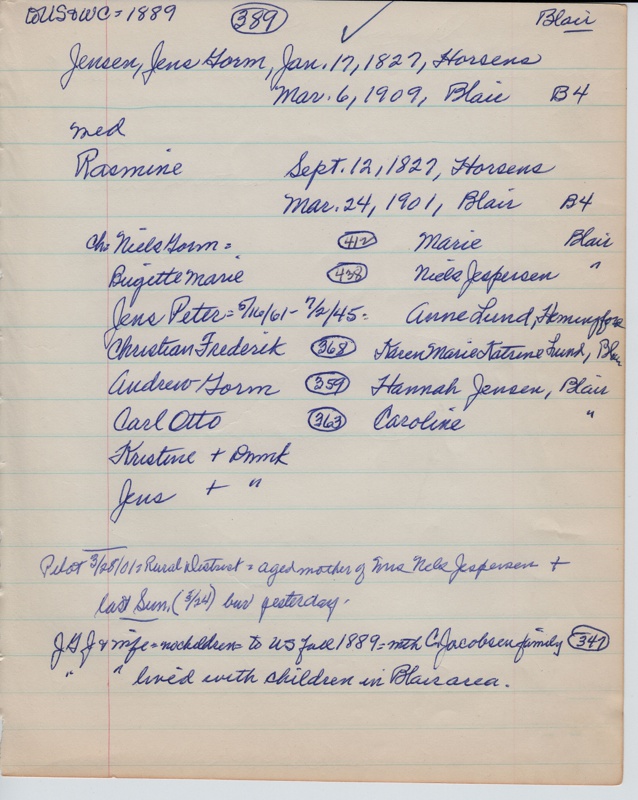 to US & WC = 1889 389 Blair
Jensen, Jens Gorm, Jan. 17, 1827, Horsens
Mar. 6, 1909, Blair B4
med
Rasmine Sept. 12, 1827, Horsens
Mar. 24, 1901, Blair B4
ch: Niels Gorm = 412 Marie Blair
Brigette Marie 438 Niels Jespersen "
Jens Peter = 5/16/61 - 7/2/45 = Anne Lund, Hemingford
Christian Frederik 368 Karen Marie Katrine Lund, Blair
Andrew Gorm 359 Hannah Jensen, Blair
Carl Otto 363 Caroline "
Kristine + Dnmk
Jens + "
Pilot 3/28/01 = Rural District = aged mother of Mrs Niels Jespersen +
last Sun. (3/24) bur yesterday.
J G J & wife = no children = to US fall 1889 = with C. Jacobsen family 347
" " lived with children in Blair area.